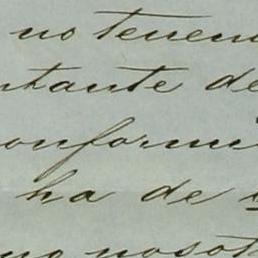 no tenem
ntante de
onformi
ha de
no nosot